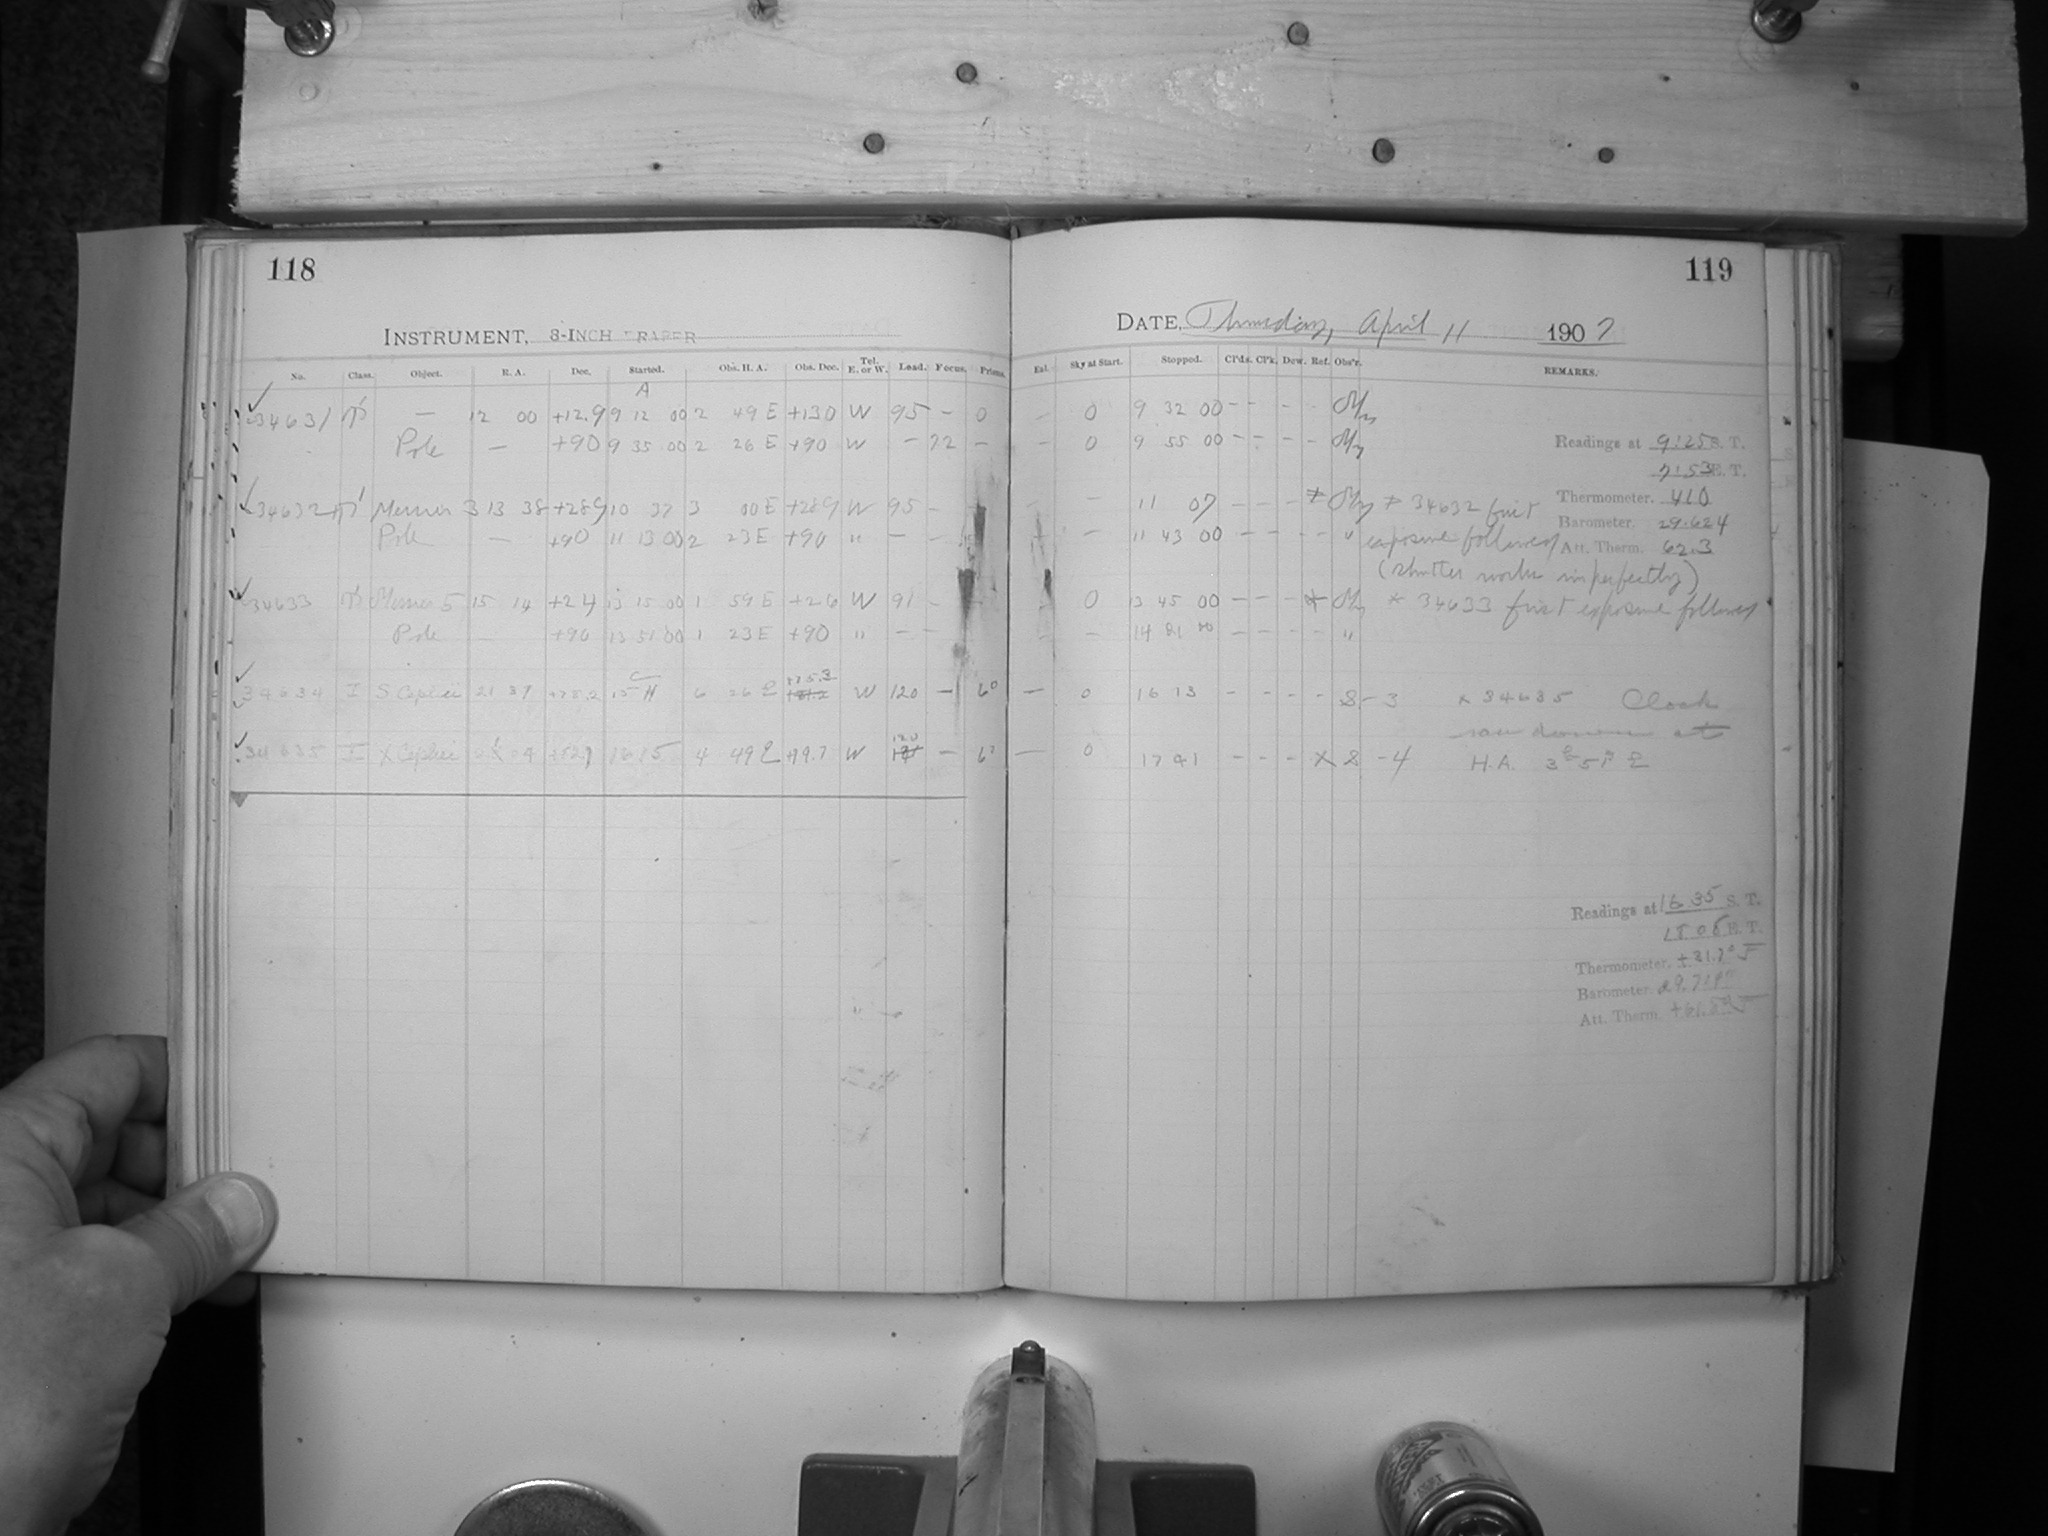 118
INSTRUMENT, 8-INCH DRAPER
No. Class. Object. R. A. Dec. Started. Obs. H. A. Obs. Dec. Tel. E. or W. Load. Focus. Prisms.
A
34631 — 12 00 +12.9 9 12 00 2 49 E +130 W 95 — 0
Pole — +90 9 35 00 2 26 E +90 W — 72 —
34632 13 38 +289 10 37 3 00 E +289 W 95 —
Pole — +90 11 13 00 2 23 E +90 " — —
34633 15 14 +24 13 15 00 1 59 E +26 W 91 —
Pole — +90 13 51 00 1 23 E +90 " — —
34634 I S Cephei 21 37 +78.2 15 6 26 E W 120 — 6
34635 I X Cephei 16 15 4 49 E +79.7 W 120 — 6
119
DATE, Thursday, April 11 1907
Ext. Sky at Start. Stopped. Cl'ds. Cl'k. Dew. Ref. Obs'r. REMARKS.
— 0 9 32 00 — — — —
— 0 9 55 00 — — — —
— 11 07 — — — * * 34632 first
— 11 43 00 — — — — " exposure followed
(shutter works imperfectly)
0 13 45 00 — — — * * 34633 first exposure followed
— 14 21 00 — — — — "
— 0 16 13 — — — — S-3 x 34635 Clock
ran down at
— 0 17 41 — — — X S-4 H.A. 3 5 E
Readings at 9:25 S. T.
7:53 E. T.
Thermometer. 410
Barometer. 29.624
Att. Therm. 62.3
Readings at 16 35 S. T.
15 08 E. T.
Thermometer. +31.7°F
Barometer.
Att. Therm.